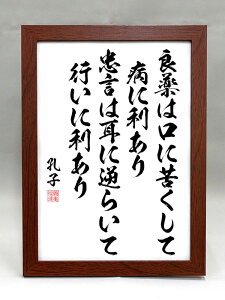 良薬は口に苦くして
病に利あり
忠言は耳に逆らいて
行いに利あり
孔子